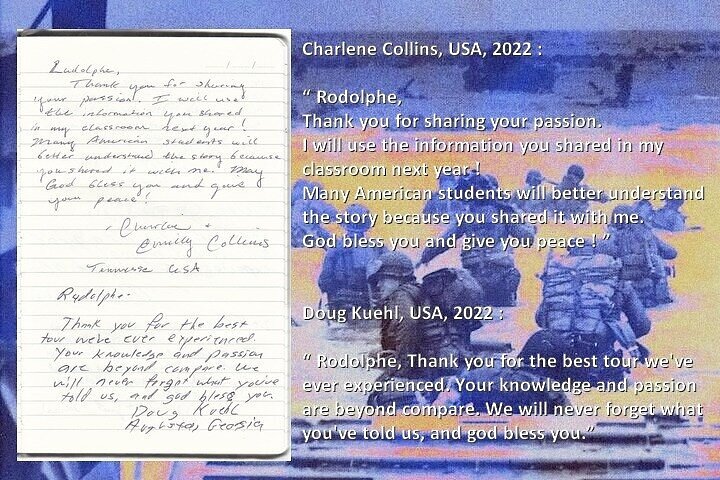 Rudolphe,
Thank you for sharing
your passion. I will use
the information you shared
in my classroom next year!
Many American students will
better understand the story because
you shared it with me. May
God bless you and give
you peace!
- Charlie +
Emily Collins
Tennessee USA
Rudolphe-
Thank you for the best
tour we've ever experienced.
Your knowledge and passion
are beyond compare. We
will never forget what you've
told us, and god bless you.
Doug Kuehl
Augusta, Georgia
Charlene Collins, USA, 2022 :
“ Rodolphe,
Thank you for sharing your passion.
I will use the information you shared in my
classroom next year !
Many American students will better understand
the story because you shared it with me.
God bless you and give you peace ! ”
Doug Kuehl, USA, 2022 :
“ Rodolphe, Thank you for the best tour we've
ever experienced. Your knowledge and passion
are beyond compare. We will never forget what
you've told us, and god bless you.”